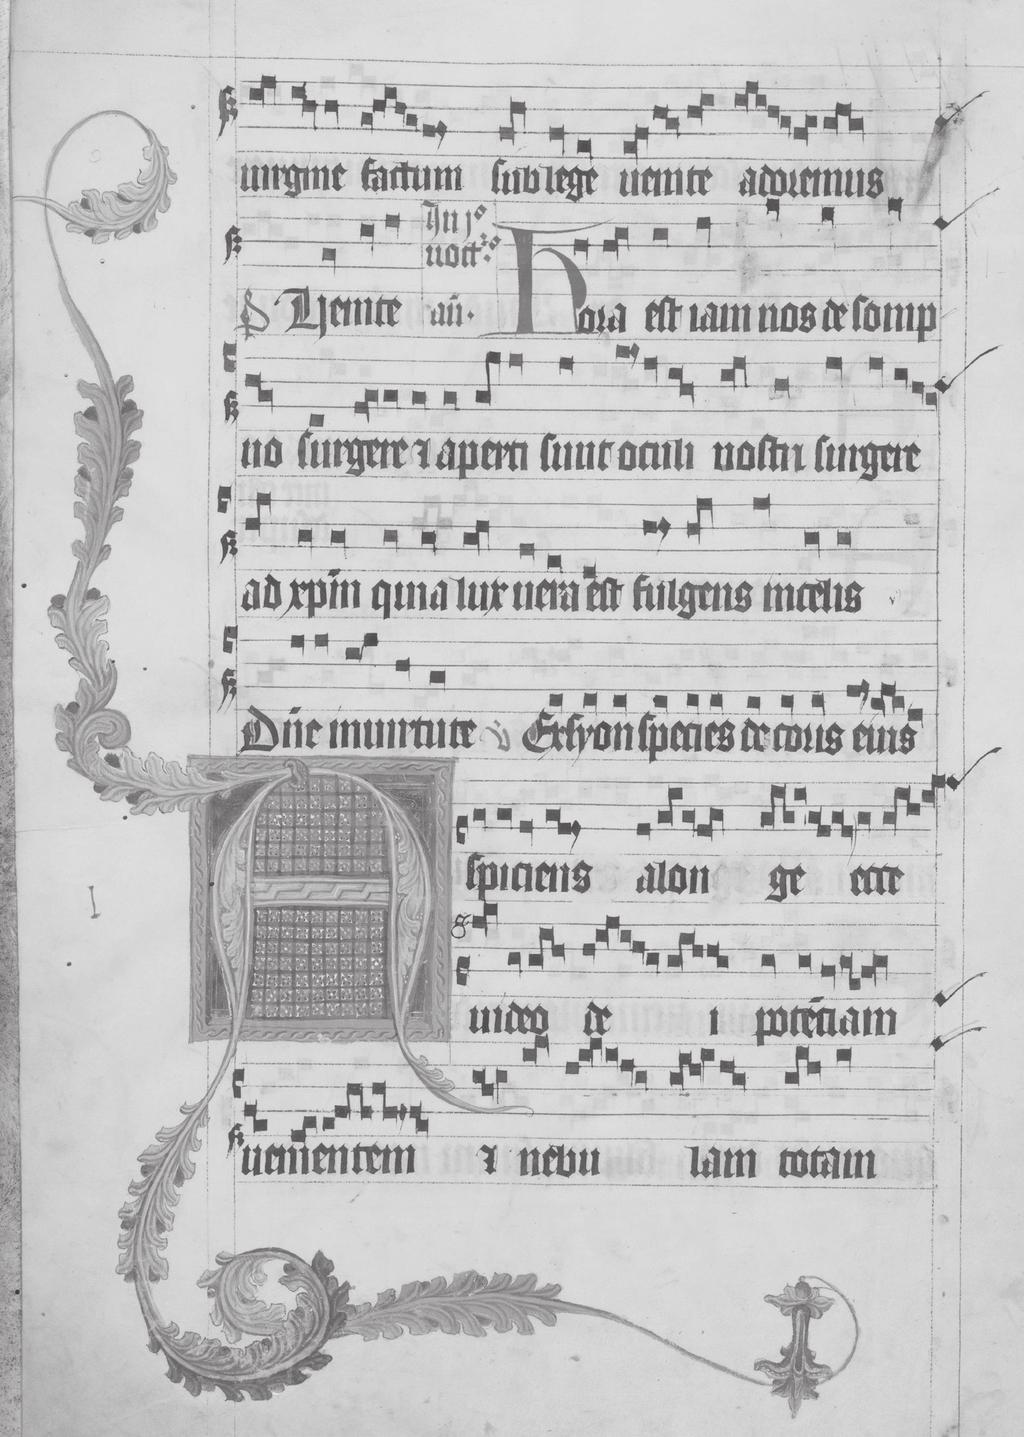 uirgine factum sub lege uenite adoremus
In jº
noctº
ps Uenite añ. Hora est iam nos de somp
no surgere ⁊ aperti sunt oculi nostri surgere
ad xpm̄ quia lux uera est fulgens in celis
Dn̄e in uirtute ℣ Ex syon species decoris eius
Aspiciens a longe ecce
uideo de i potēciam
uenientem ⁊ nebu lam totam